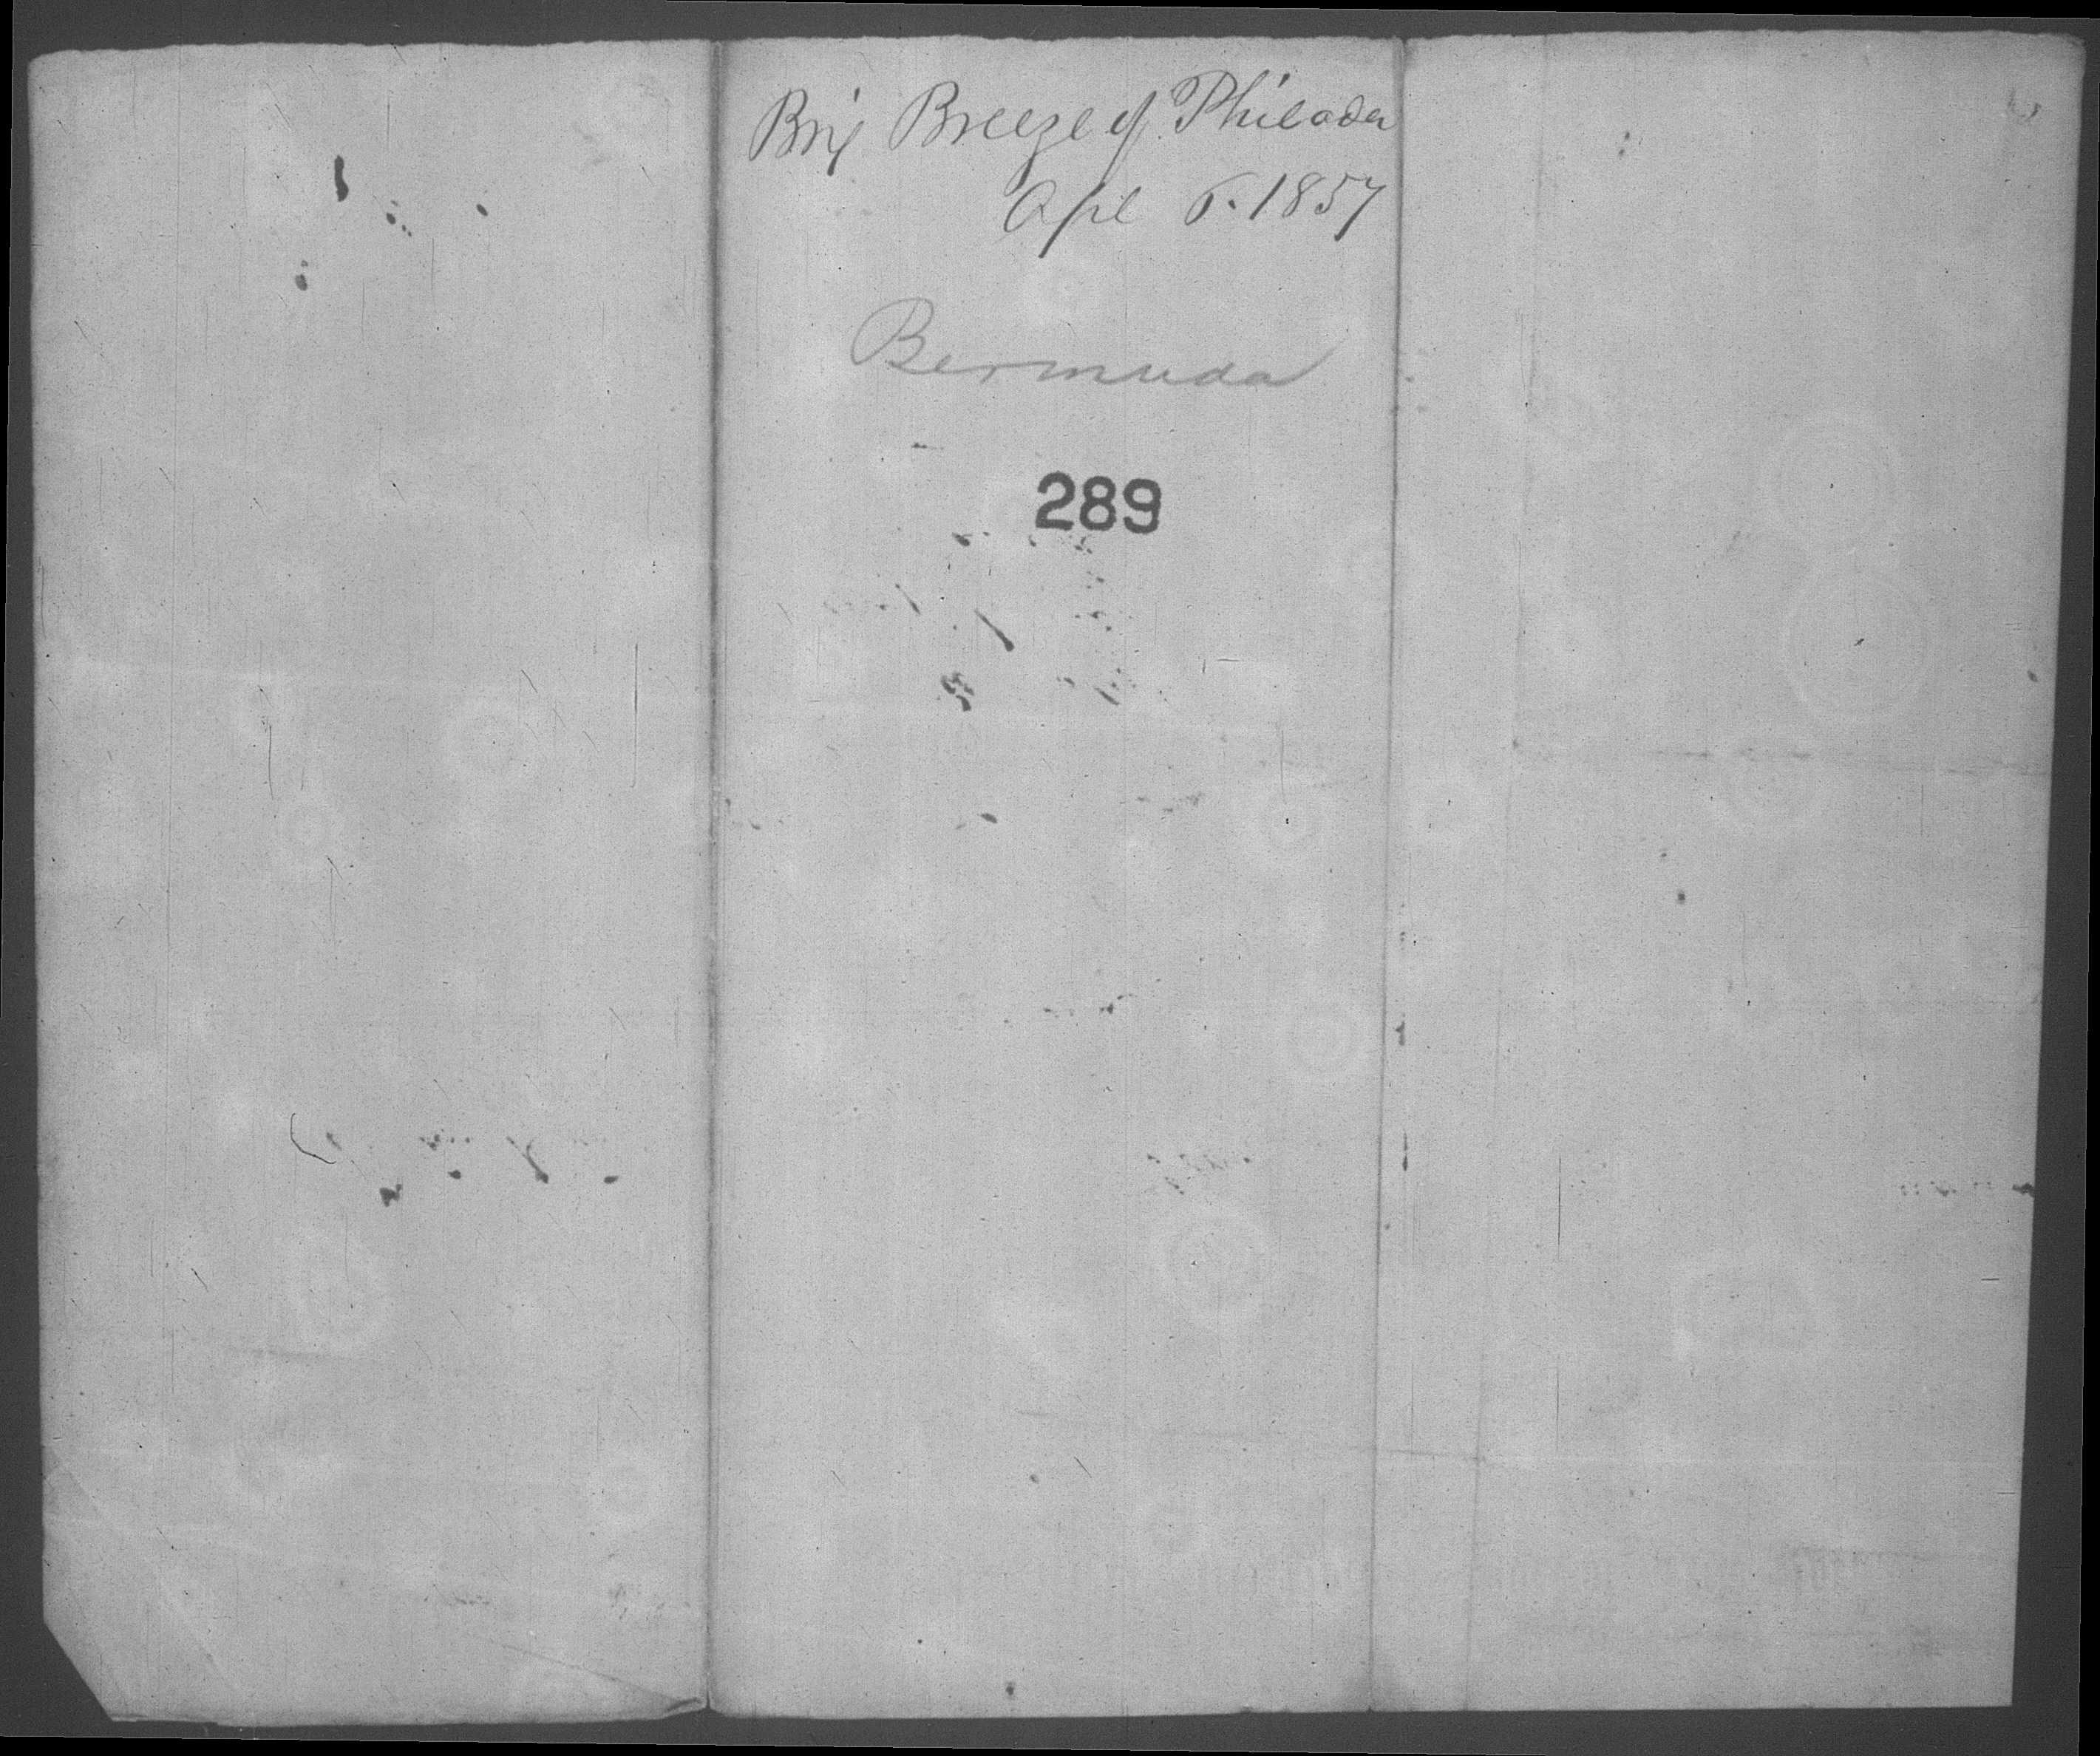 Brig Breeze of Philada
Apl 6. 1857
Bermuda
289